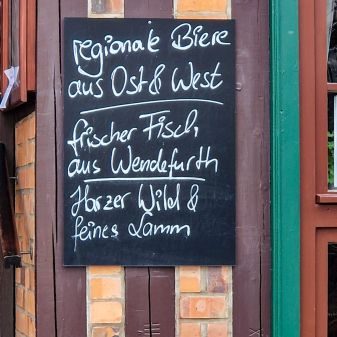 regionale Biere
aus Ost & West
frischer Fisch,
aus Wendefurth
Harzer Wild &
feines Lamm